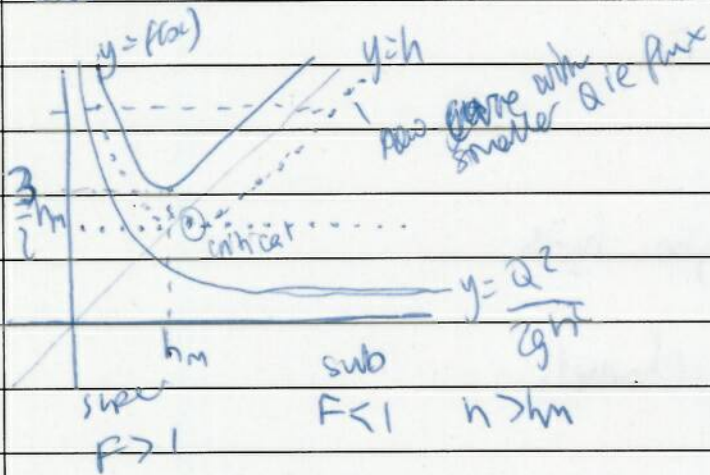 y=f(x)
y=h
new curve with
smaller Q ie flux
3/2 hm
critical
y= Q²/2gh²
hm
super
F>1
sub
F<1
h>hm